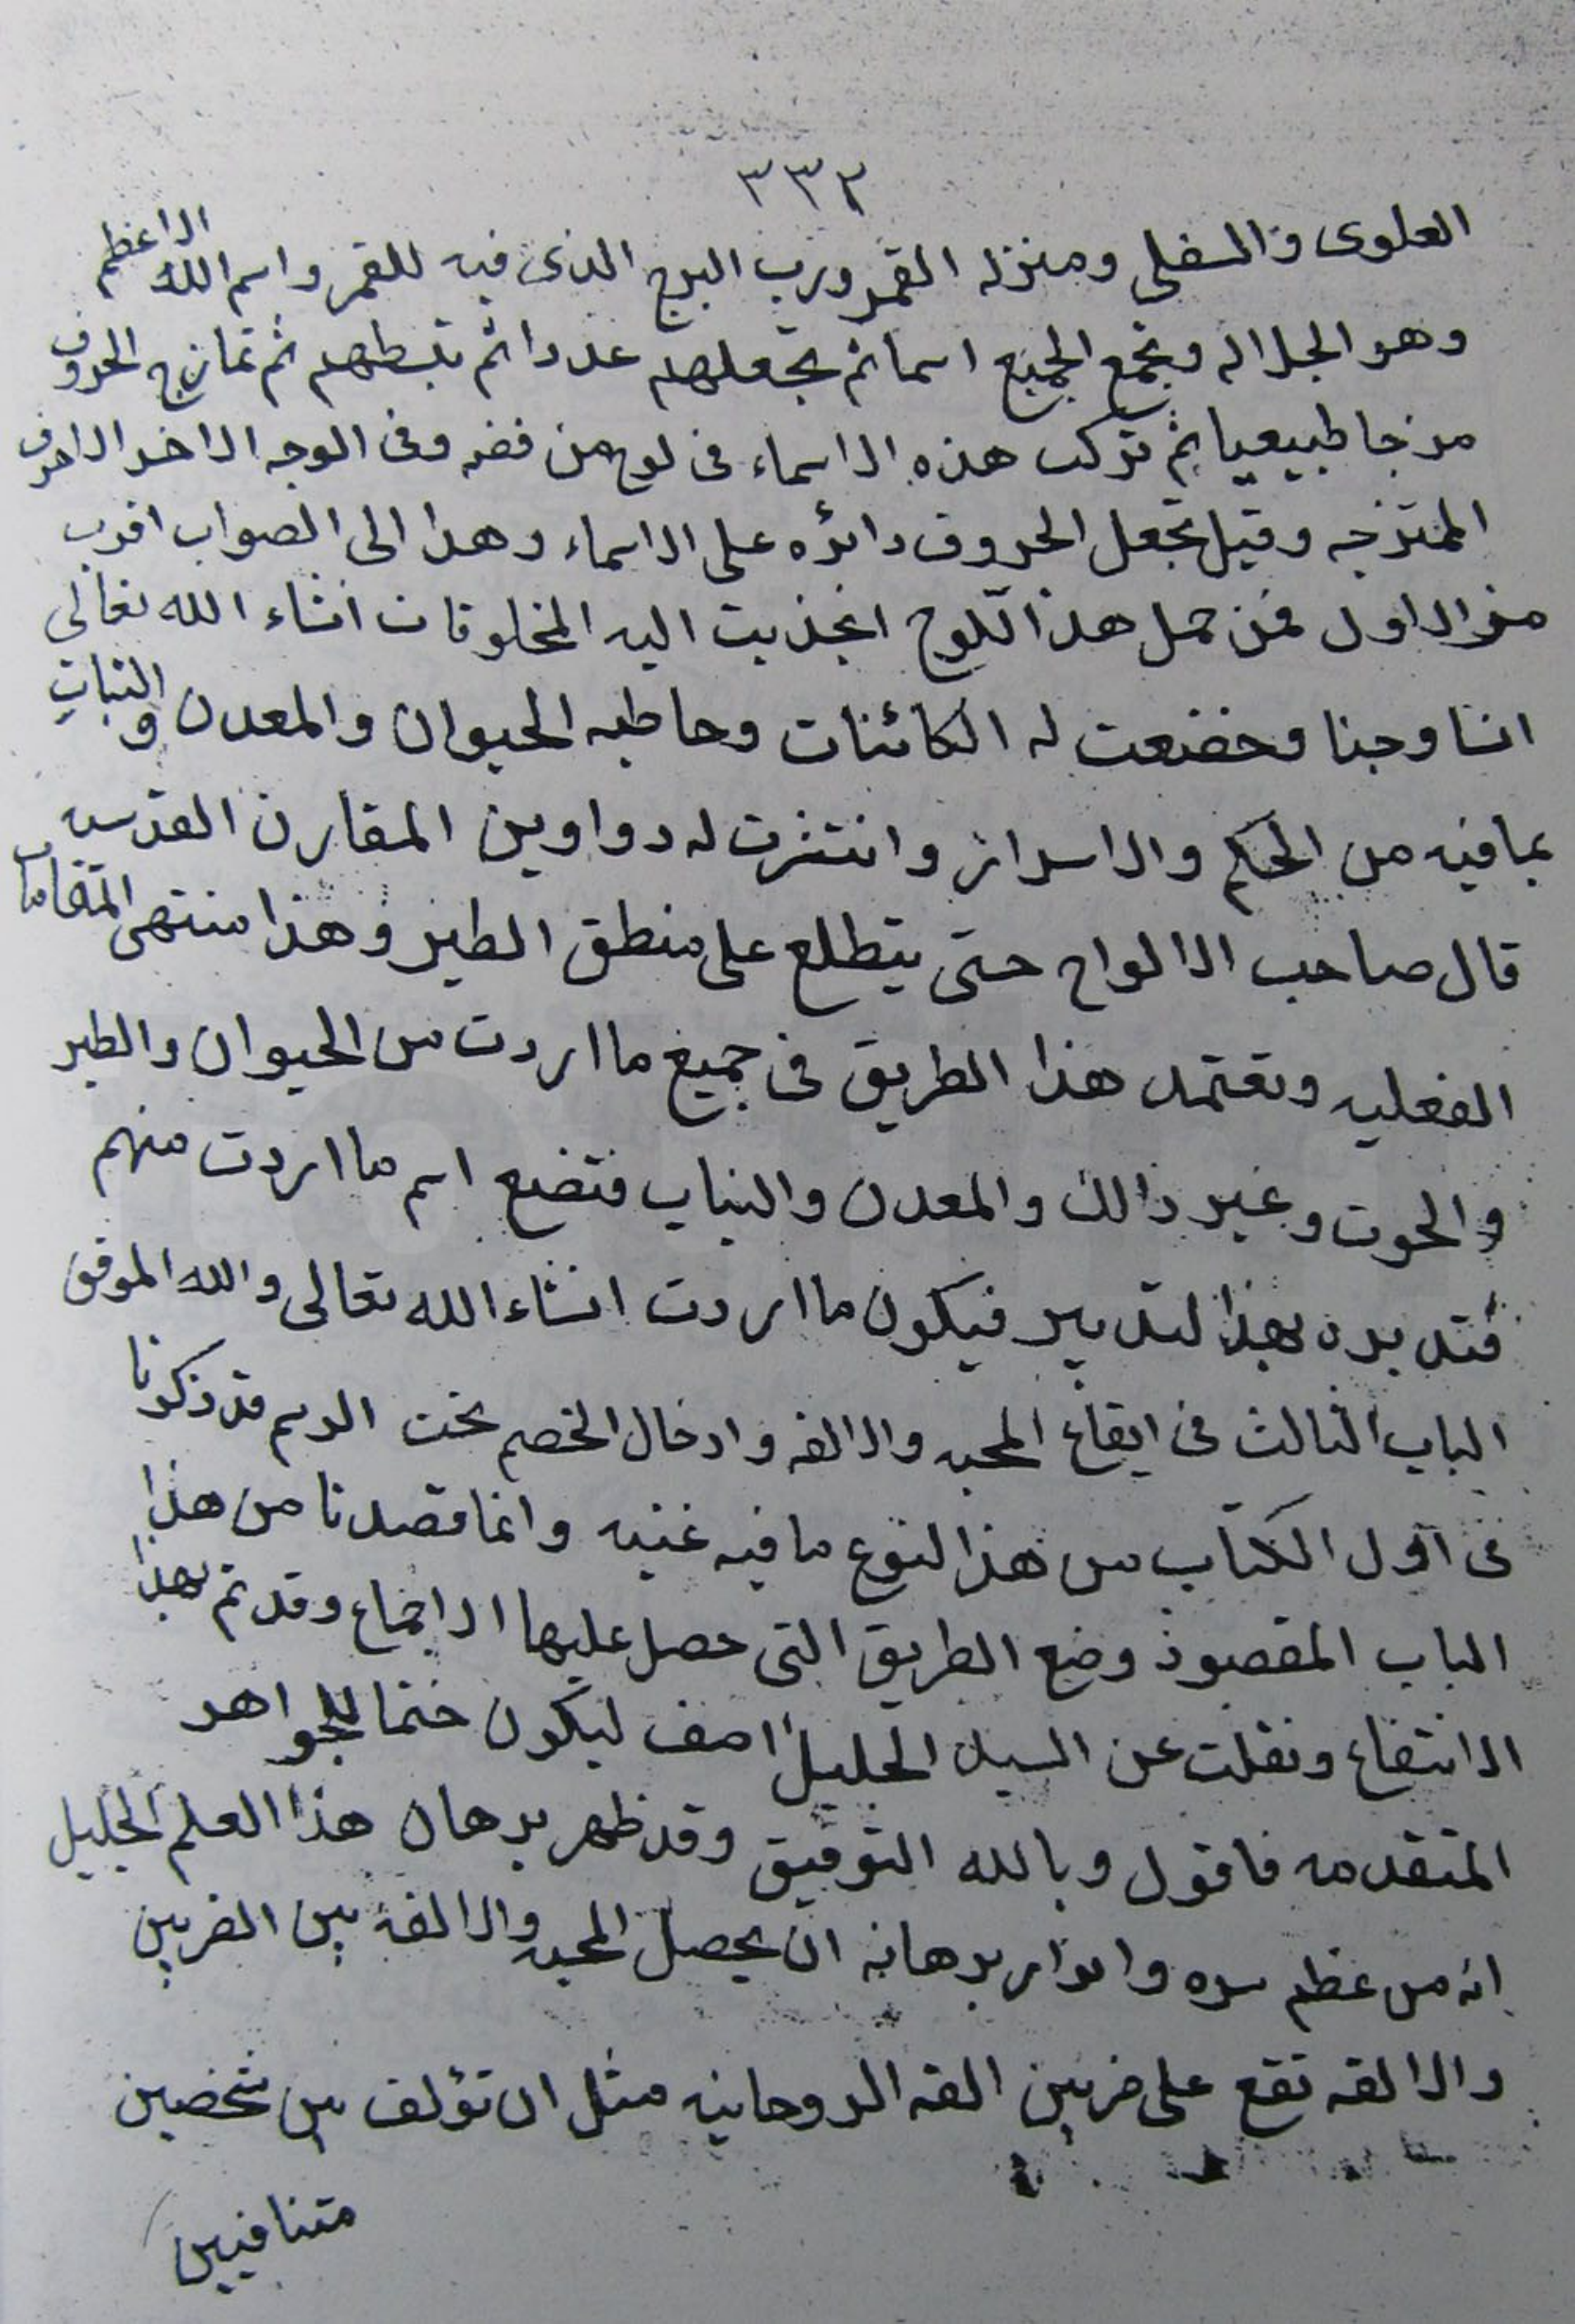 ٣٣٢
العلوى والسفلى ومنزله القمر ورب البرج الذى فيه للقمر واسم الله الاعظم
وهو الجلاله وتجمع الجميع اسما ثم تجعلهم عددا ثم تبسطهم ثم تمازج الحروف
مزجا طبيعيا ثم تركب هذه الاسماء فى لوح من فضه وفى الوجه الاخر الاحرف
الممتزجه وقيل تجعل الحروف دائره على الاسماء وهذا الى الصواب اقرب
من الاول فمن حمل هذا اللوح انجذبت اليه المخلوقات انشاء الله تعالى
انسا وجنا وخضعت له الكائنات وخاطبه الحيوان والمعدن والنبات
بما فيه من الحكم والاسرار وانتشرت له دواوين المقارن القدسيه
قال صاحب الالواح حتى يتطلع على منطق الطير وهذا منتهى المقامات
الفعليه وتعتمد هذا الطريق فى جميع ما اردت من الحيوان والطير
والحوت وغير ذالك والمعدن والنبات فتضع اسم ما اردت منهم
فتدبره بهذا لتدبير فيكون ما اردت انشاء الله تعالى والله الموفق
الباب الثالث فى ايقاع المحبه والالفه وادخال الخصم تحت الرسم قد ذكرنا
فى اول الكتاب من هذا لنوع ما فيه غنيه وانما قصدنا من هذا
الباب المقصود وضع الطريق التى حصل عليها الاجماع وقد تم بهذا
الانتفاع ونقلت عن السيد الجليل اصف ليكون ختما للجواهر
المتقدمه فاقول وبالله التوفيق وقد ظهر برهان هذا العلم الجليل
انه من عظم سره وانوار برهانه ان يحصل المحبه والالفه بين الضربين
والالفه تقع على ضربين الفه الروحانيه مثل ان تؤلف بين شخصين
متنافيين